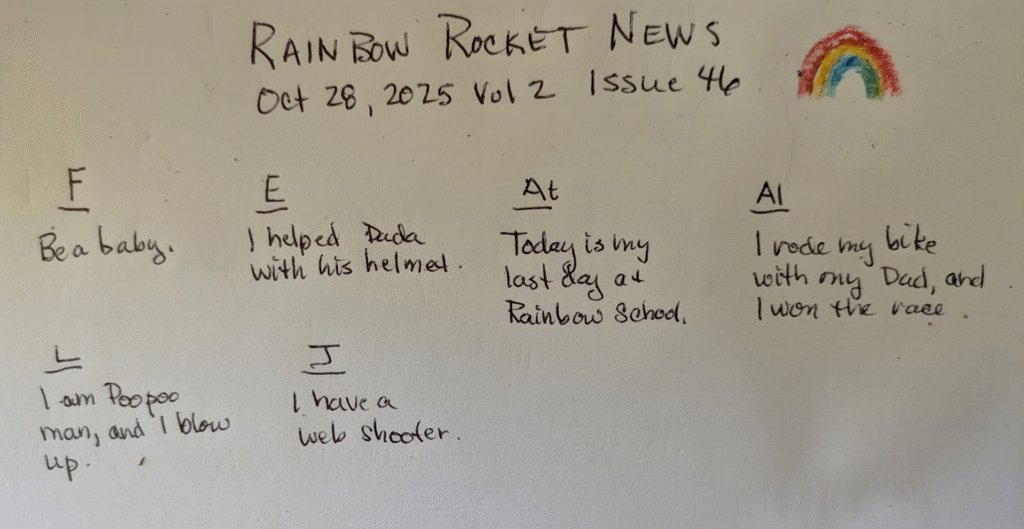 RAINBOW ROCKET NEWS
Oct 28, 2025 Vol 2 Issue 46
F
Be a baby.
E
I helped Dada
with his helmet.
At
Today is my
last day at
Rainbow School.
Al
I rode my bike
with my Dad, and
I won the race.
L
I am Poopoo
man, and I blow
up.
J
I have a
web shooter.